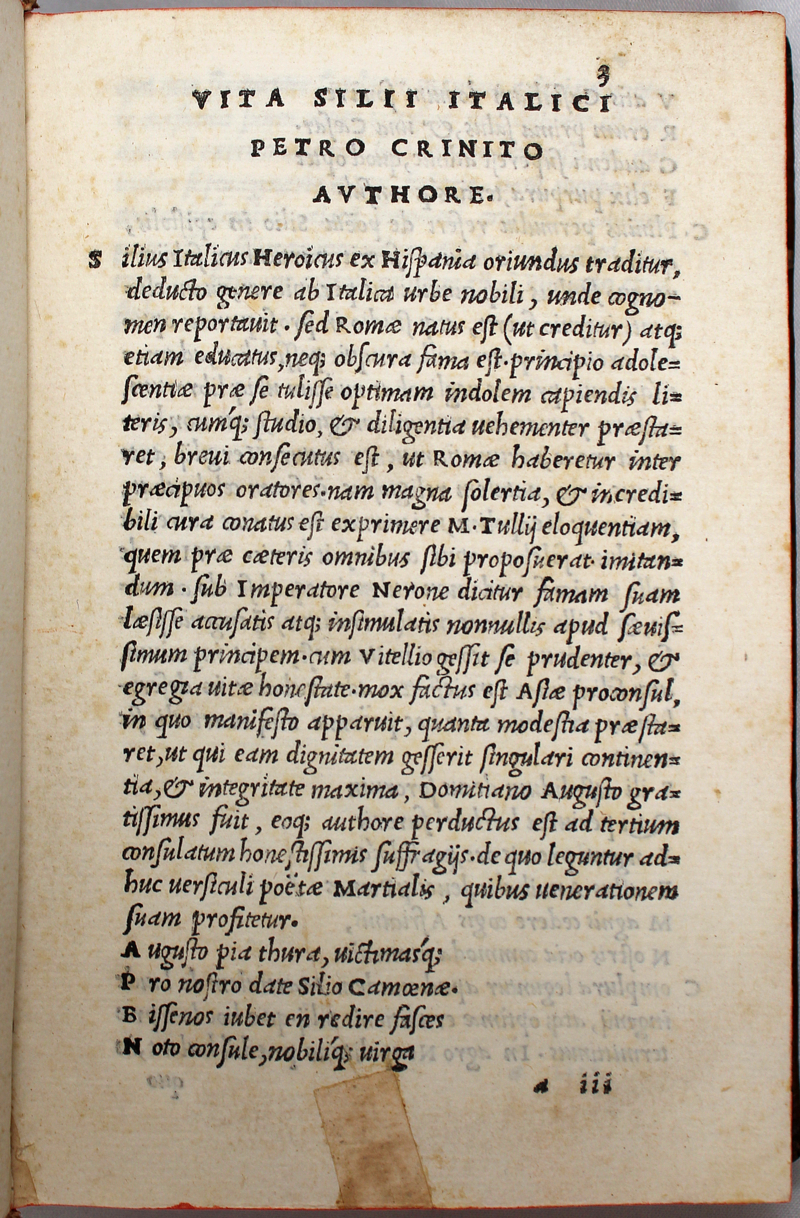 3
VITA SILII ITALICI
PETRO CRINITO
AVTHORE.
S ilius Italicus Heroicus ex Hiſpania oriundus traditur,
deducto genere ab Italica urbe nobili, unde cogno-
men reportauit. ſed Romæ natus eſt (ut creditur) atq;
etiam educatus, neq; obſcura fama eſt. principio adole-
ſcentiæ præ ſe tuliſſe optimam indolem capiendis li-
teris, cumq́; ſtudio, & diligentia uehementer præſta-
ret, breui conſecutus eſt, ut Romæ haberetur inter
præcipuos oratores. nam magna ſolertia, & incredi-
bili cura conatus eſt exprimere M. Tullij eloquentiam,
quem præ cæteris omnibus ſibi propoſuerat imitan-
dum. ſub Imperatore Nerone dicitur famam ſuam
læſiſſe accuſatis atq; inſimulatis nonnullis apud ſæuiſ-
ſimum principem. cum Vitellio geſſit ſe prudenter, &
egregia uitæ honeſtate. mox factus eſt Aſiæ proconſul,
in quo manifeſto apparuit, quanta modeſtia præſta-
ret, ut qui eam dignitatem geſſerit ſingulari continen-
tia, & integritate maxima, Domitiano Auguſto gra-
tiſſimus fuit, eoq; authore perductus eſt ad tertium
conſulatum honeſtiſſimis ſuffragijs. de quo leguntur ad-
huc uerſiculi poëtæ Martialis, quibus uenerationem
ſuam profitetur.
A uguſto pia thura, uictimasq́;
P ro noſtro date Silio Camœnæ.
B iſſenos iubet en redire faſces
N oto conſule, nobiliq́; uirga
a iii